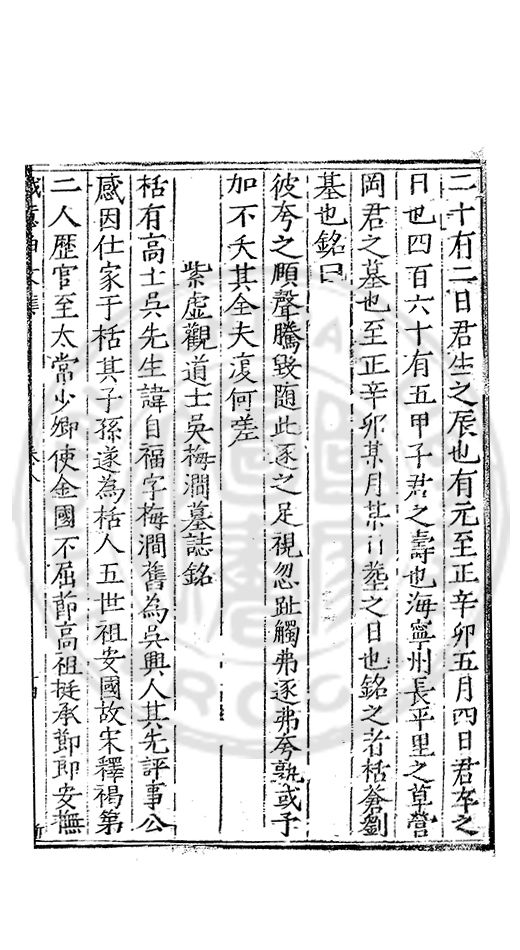 二十有二日君生之辰也有元至正辛卯五月四日君卒之
日也四百六十有五甲子君之壽也海寧州長平里之草營
岡君之墓也至正辛卯某月某日塟之日也銘之者栝蒼劉
基也銘曰
彼夸之頎聲騰毀随此逐之足視忽趾觸弗逐弗夸孰或予
加不夭其全夫復何差
紫虛觀道士吳梅澗墓誌銘
栝有高士吳先生諱自福字梅澗舊為吳興人其先評事公
感因仕家于栝其子孫遂為栝人五世祖安國故宋釋褐第
二人歴官至太常少卿使金國不屈節高祖挺承節郎安撫